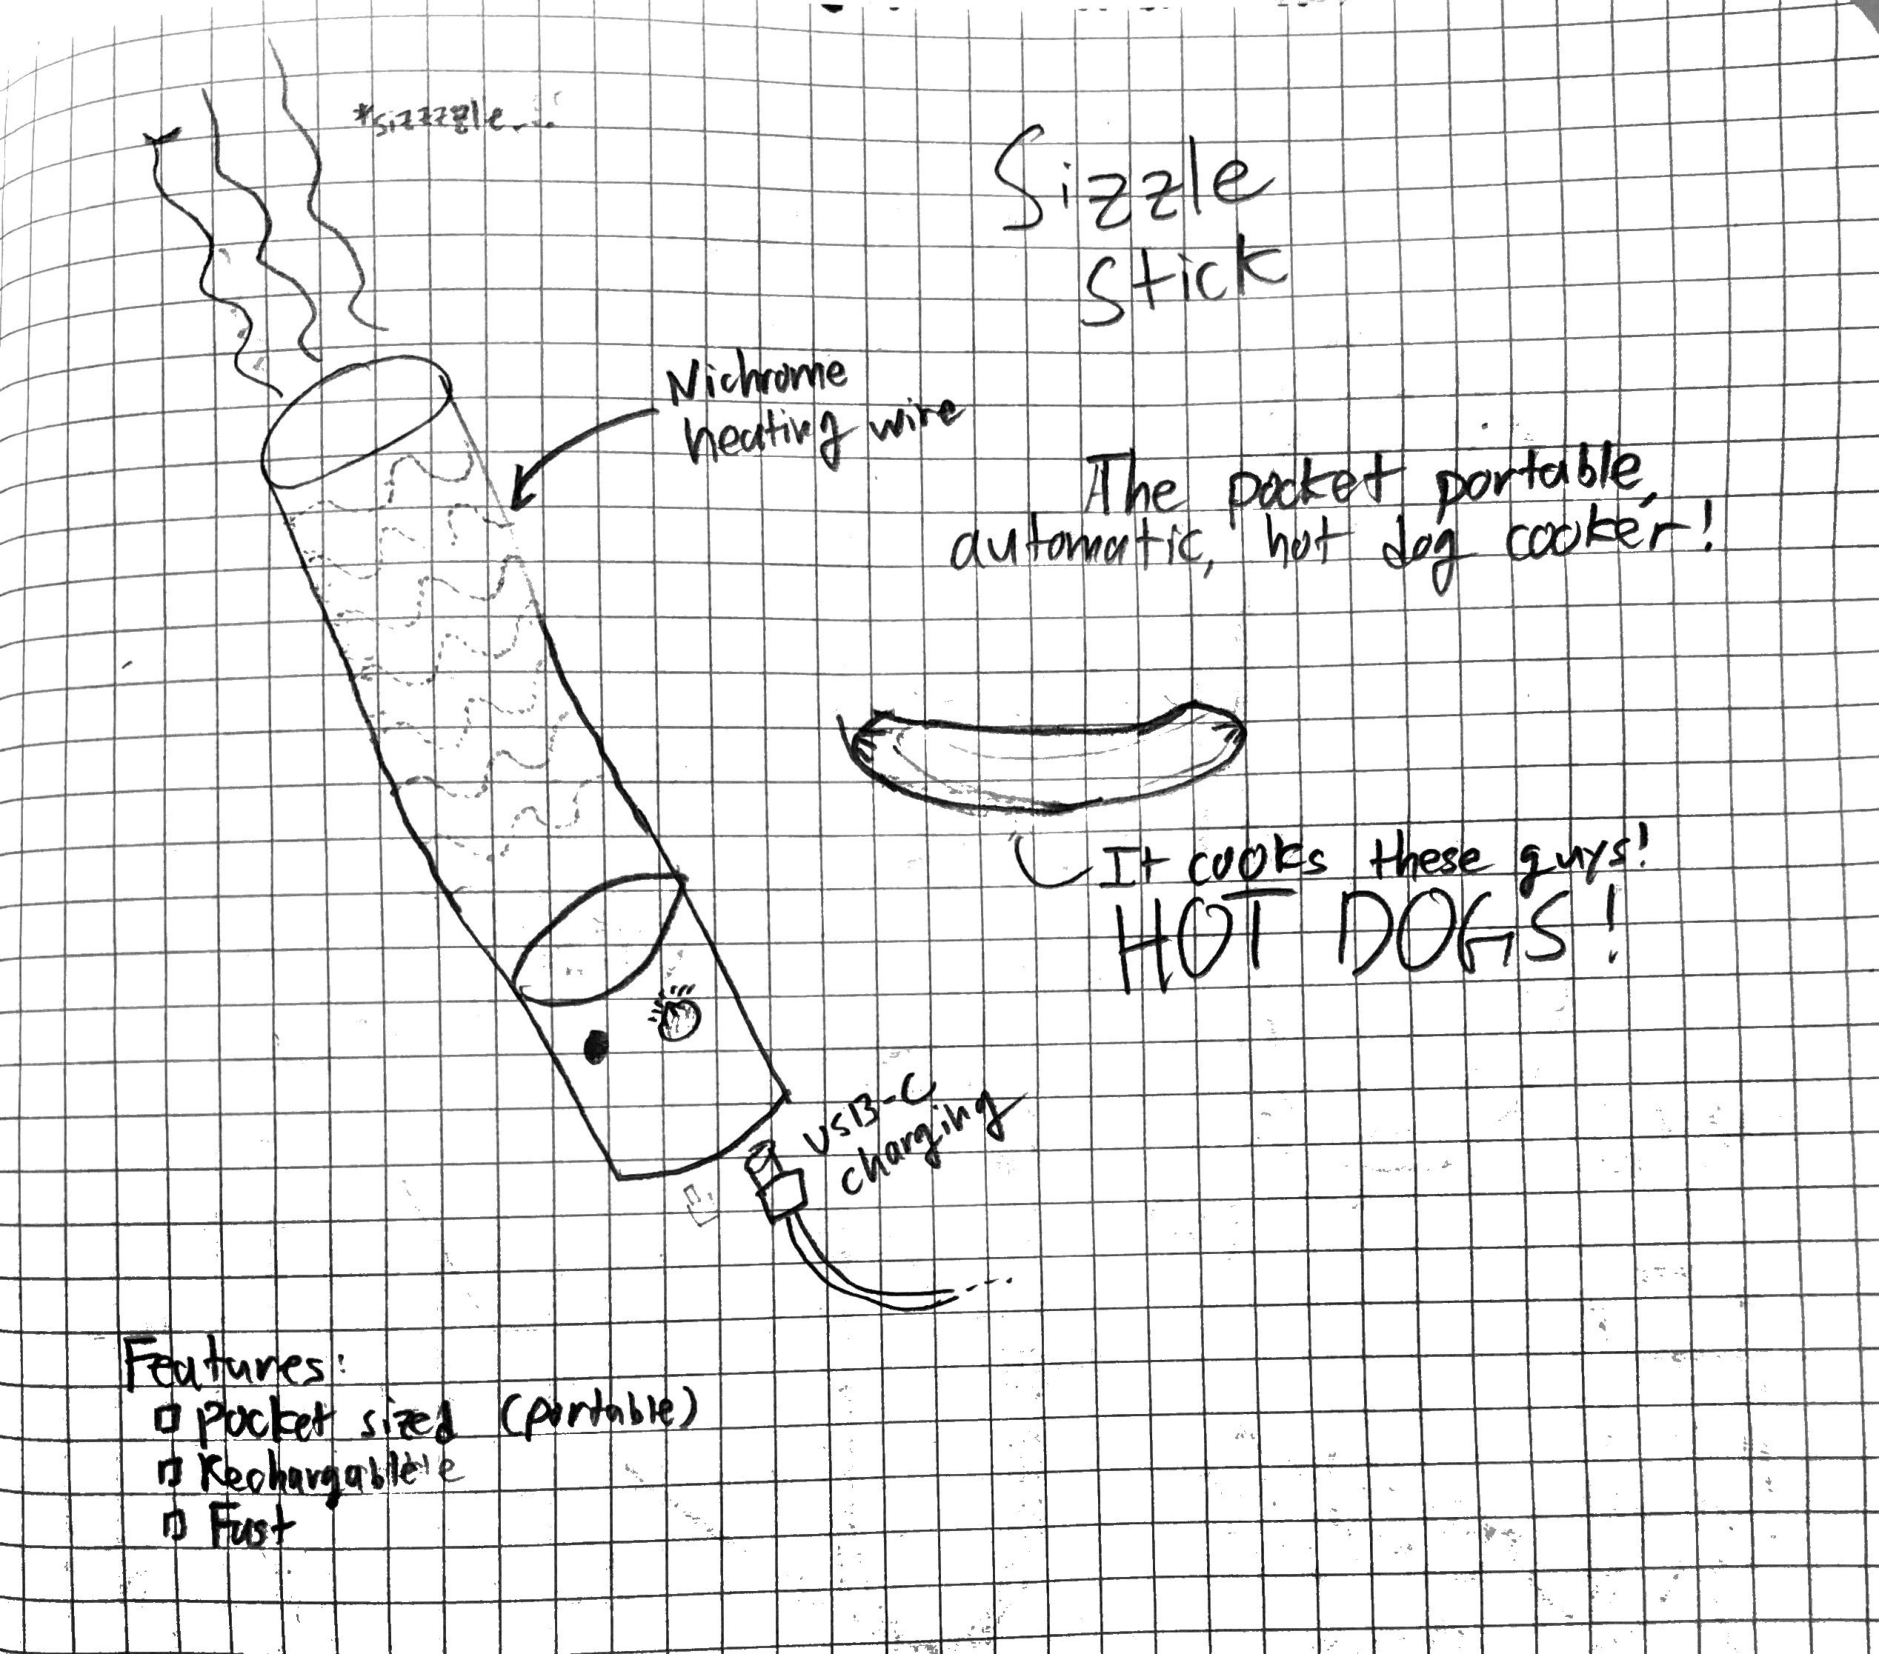 *sizzzzle...
Sizzle
Stick
Nichrome
heating wire
The pocket portable,
automatic, hot dog cooker!
It cooks these guys!
HOT DOGS!
USB-C
charging
Features:
Pocket sized (portable)
Rechargablele
Fast